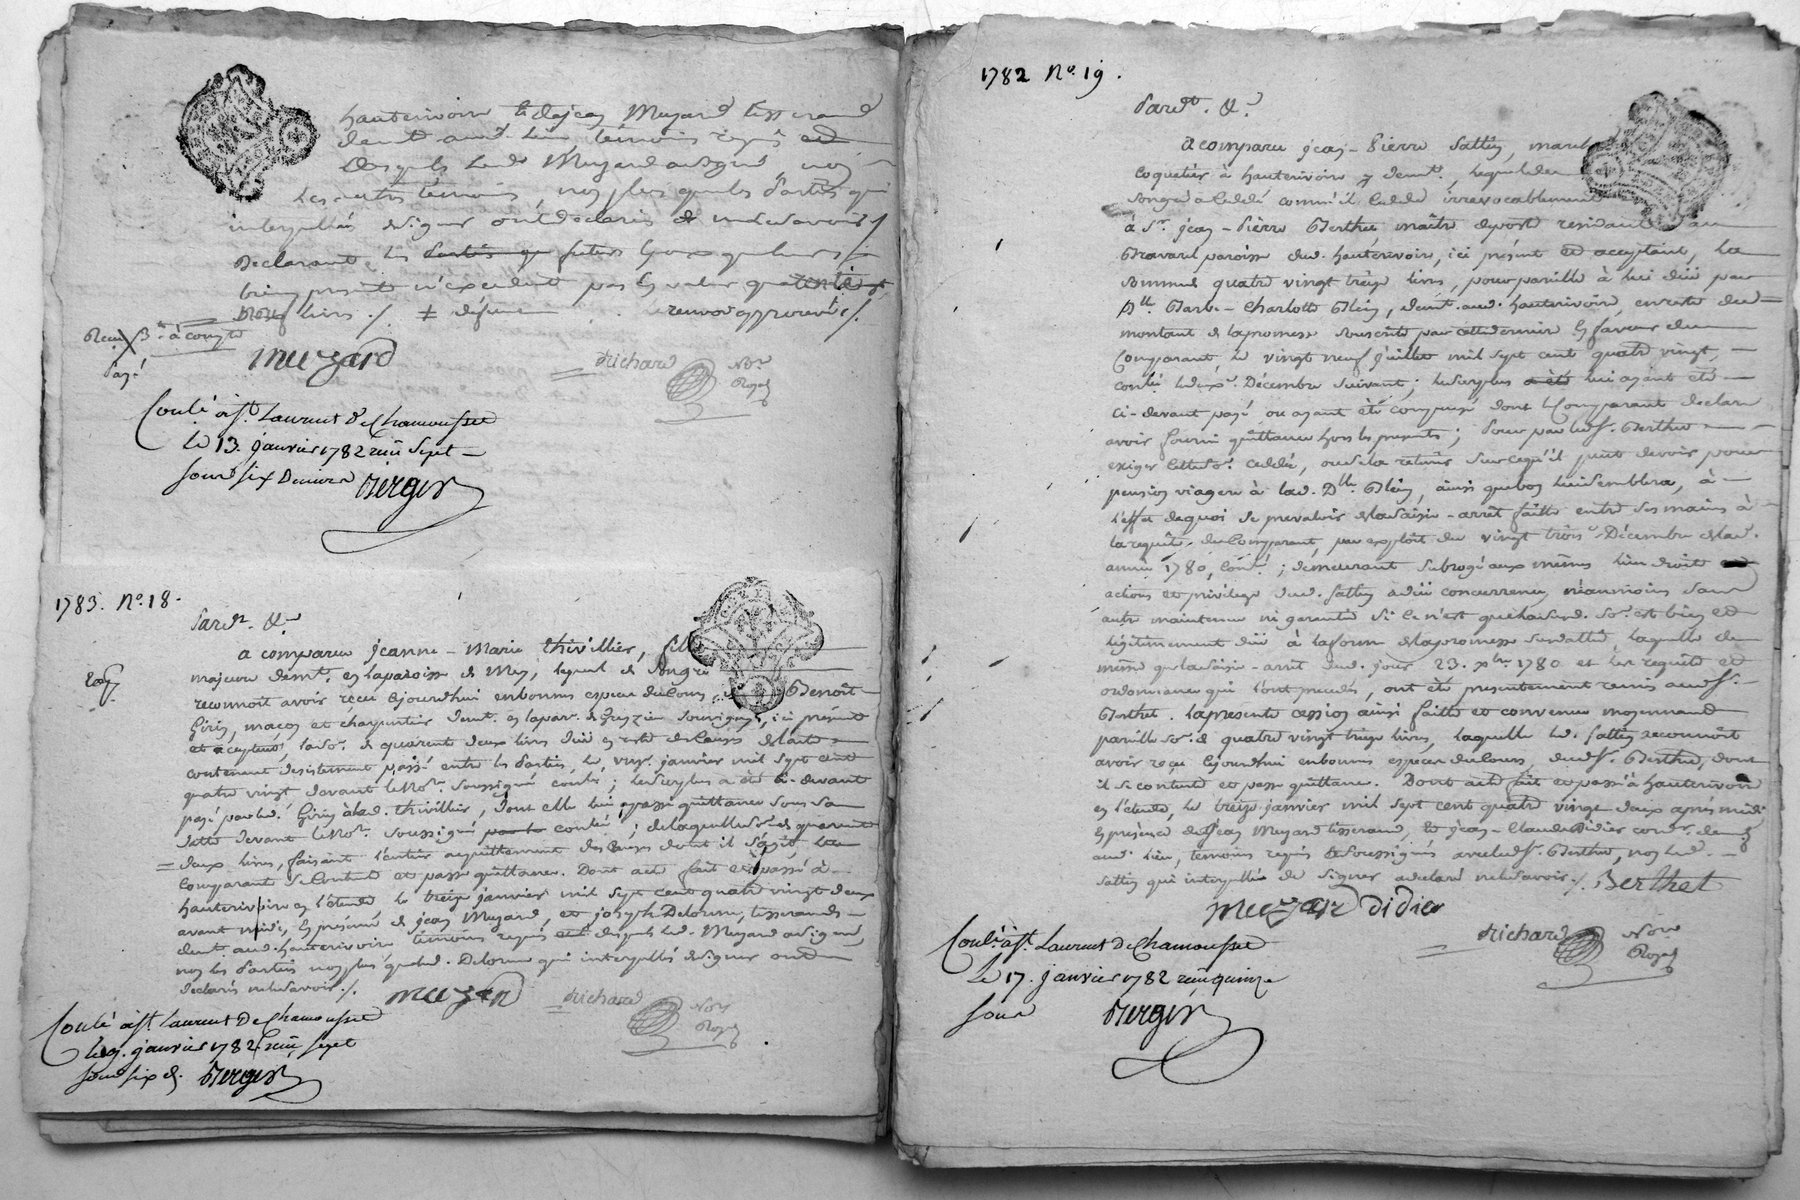 hauterivoire jean Muzard tisserand
demt. aud. lieu témoins requis et
desquels led. Muzard a signé, non
les autres témoins, non plus que les parties qui
interpellés de signer ont déclaré ne le savoir /
Declarant les parties que futurs que leurs
biens présents n'excedent pas la valeur
livres ./. renvoy approuvé /.
Recu 3 lt. à compte
Payé
Muzard
Richard Nore
Royal
Conlé à St. Laurent De Chamousset
Le 13. janvier 1782 reçu Sept
sous six Deniers Berger
1783. No. 18.
Pardt. &a
a comparu jeanne - Marie thivillier, fille
majeure demt. en la paroisse de Meys, laquelle de son gré
reconnoit avoir reçu cejourdhui en bonnes especes du cours, Benoît
Giry, maçon et charpentier demt. en la par. de Grezieu Souvigny, ici présent
et acceptant, la so. de quarente deux livres düe en reste de l'acte
contenant desistement passé entre les Parties, le janvier mil sept cent
quatre vingt devant le Nore. soussigné conlé; le surplus a été ci-devant
payé par led. Giry à lad. thivillier, dont elle lui a passé quittance sous sa
datte devant le Nore. soussigné conlé; de laquelle so. de quarente
deux livres, faisant l'entier acquittement des causes dont il s'agit, la
Comparante se Contente et passe quittance. Dont acte fait et passé à
hauterivoire en l'étude le treize janvier mil sept cent quatre vingt deux
avant midi, En présence de jean Muzard, et joseph Delorme, tisserands
demt. aud. hauterivoire témoins requis desquels led. Muzard a signé,
non les Parties non plus que led. Delorme qui interpellés de signer ont
declaré ne le savoir ./. Muzard
Richard Nore
Royal
Conlé à St. Laurent De Chamousset
janvier 1782. reçu sept
sous six d. Berger
1782 No. 19.
Pardt. &a
a comparu jean - Pierre Sattin, march
coquetier à hauterivoire y demt. lequel de
son gré a Cedé comme il Cede irrevocablement
à Sr. jean - Pierre Berthet maître de poste residant au
Bravard paroisse dud. hauterivoire, ici présent et acceptant, la
somme de quatre vingt treize livres, pour pareille à lui düe par
Dlle. Barbe - Charlotte Blein, demt. aud. hauterivoire, en reste du
montant de la promesse souscrite par cette derniere En faveur du
Comparant, le vingt neuf juillet mil sept cent quatre vingt,
conlé le Décembre suivant; le surplus lui ayant été
ci-devant payé ou ayant été compensé dont le Comparant declare
avoir fourni quittance hors les presentes; Pour par led. Sr. Berthet
exiger cette so. cedée, ou se la retenir sur ce qu'il peut devoir pour
pension viagere à lad. Dlle. Blein, ainsi que bon lui semblera, à
l'effet de quoi se prevaloir de la Saisie - arrêt faitte entre ses mains à
la requête du Comparant, par exploit du vingt trois Décembre de lad.
année 1780, conlé; demeurant subrogé aux mêmes lieu droits
actions et privilege dud. Sattin à düe concurrence, néanmoins sans
autre maintenue ni garantie si ce n'est que lad. so. est bien et
légitimement düe à la forme de la promesse susdattée, laquelle de
même que la Saisie - arrêt dud. jour 23. xbre 1780 et les requête et
ordonnance qui l'ont précédé, ont été presentement remis aud. Sr.
Berthet. la presente cession ainsi faitte et convenue moyennant
pareille so. de quatre vingt treize livres, laquelle led. Sattin reconnoit
avoir reçu cejourdhui en bonnes especes du Cours, dud. Sr. Berthet, dont
il se contente et passe quittance. Dont acte fait et passé à hauterivoire
en l'étude, le treize janvier mil sept cent quatre vingt deux après midi,
En présence de jean Muzard tisserand, et jean - Claude Didier cordr. demt.
aud. lieu, temoins requis et soussignés avec led. Sr. Berthet, non led.
Sattin qui interpellé de signer a declaré ne le savoir ./. Berthet
Muzard Didier
Richard Nore
Royal
Conlé à St. Laurent De Chamousset
Le 17. janvier 1782 reçu quinze
sous Berger